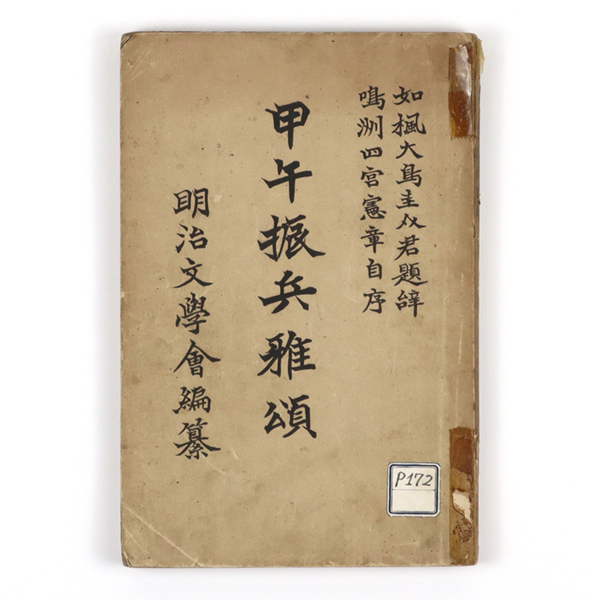 如楓大鳥圭介君題辭
鳴洲四宮憲章自序
甲午振兵雅頌
明治文學會編纂
P172